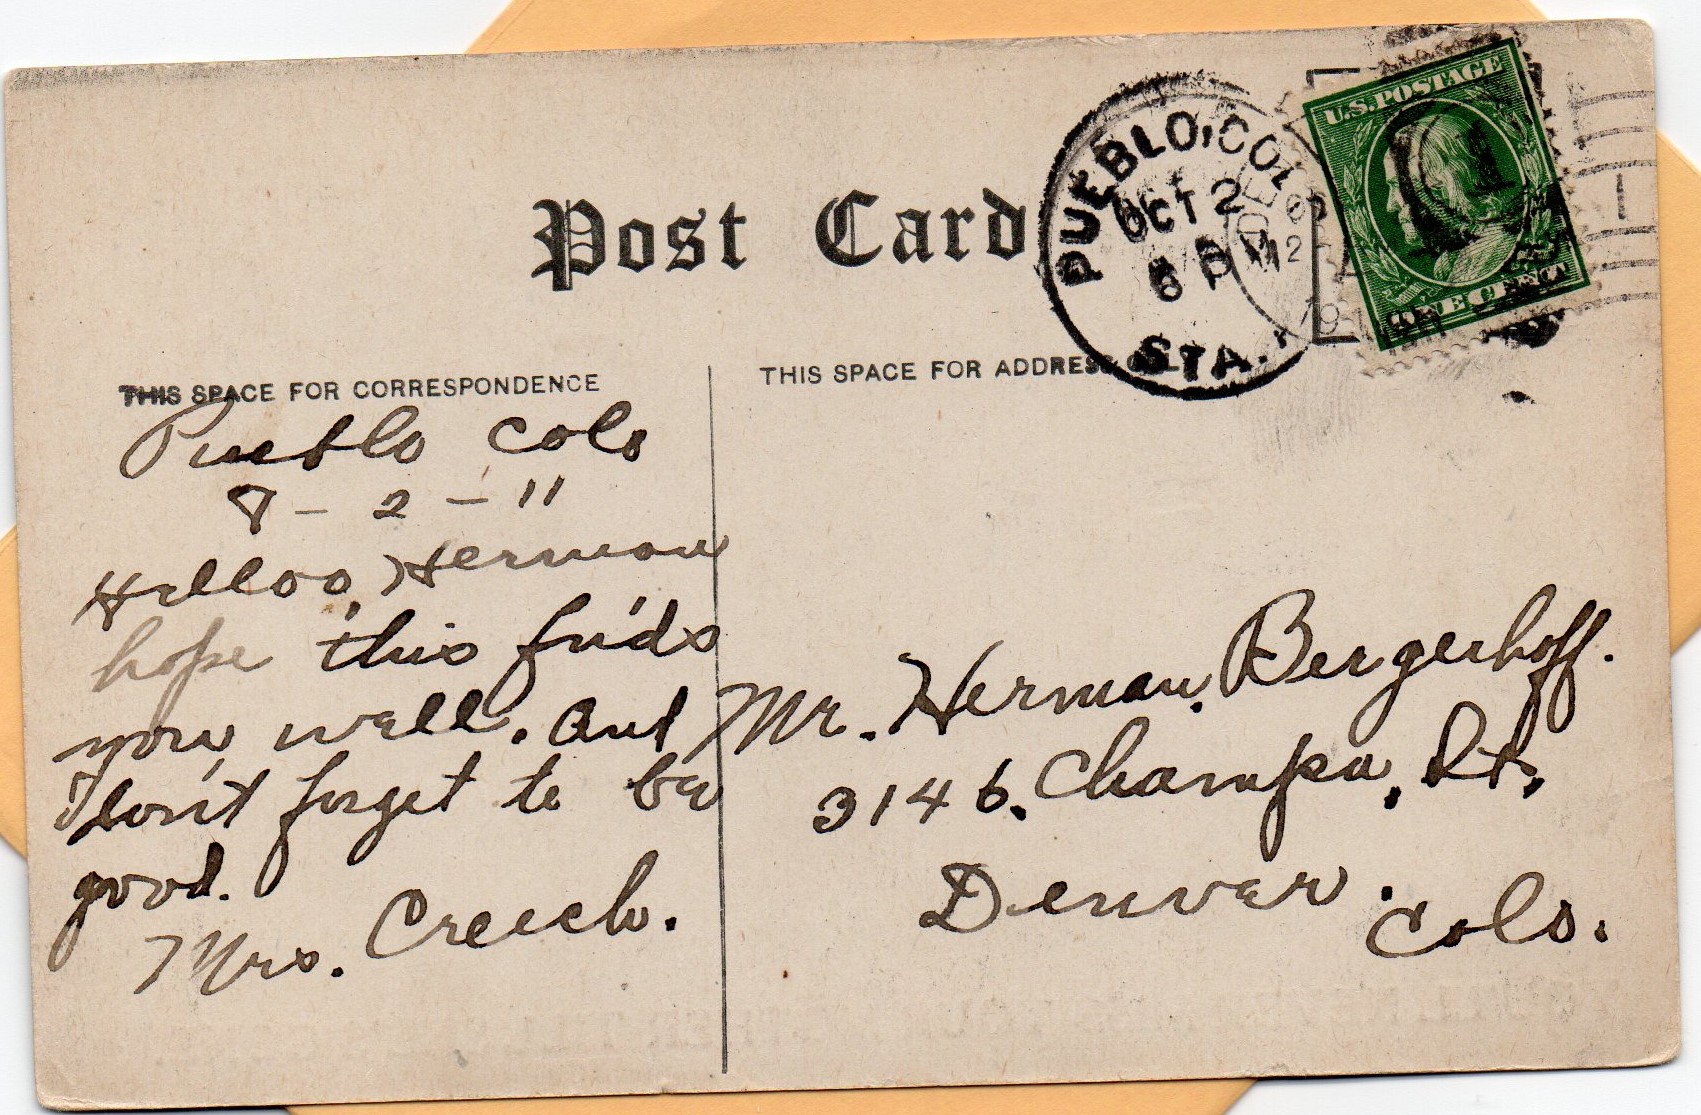 Post Card
PUEBLO, COLO.
OCT 2
6 PM
STA. 1
U.S. POSTAGE
ONE CENT
THIS SPACE FOR CORRESPONDENCE
THIS SPACE FOR ADDRESS ONLY
Pueblo Colo
8 - 2 - 11
Helloo, Herman
hope this finds
you well. and
don't forget to be
good.
Mrs. Creech.
Mr. Herman, Bergerhoff.
3146, Champa, St,
Denver.
Colo.